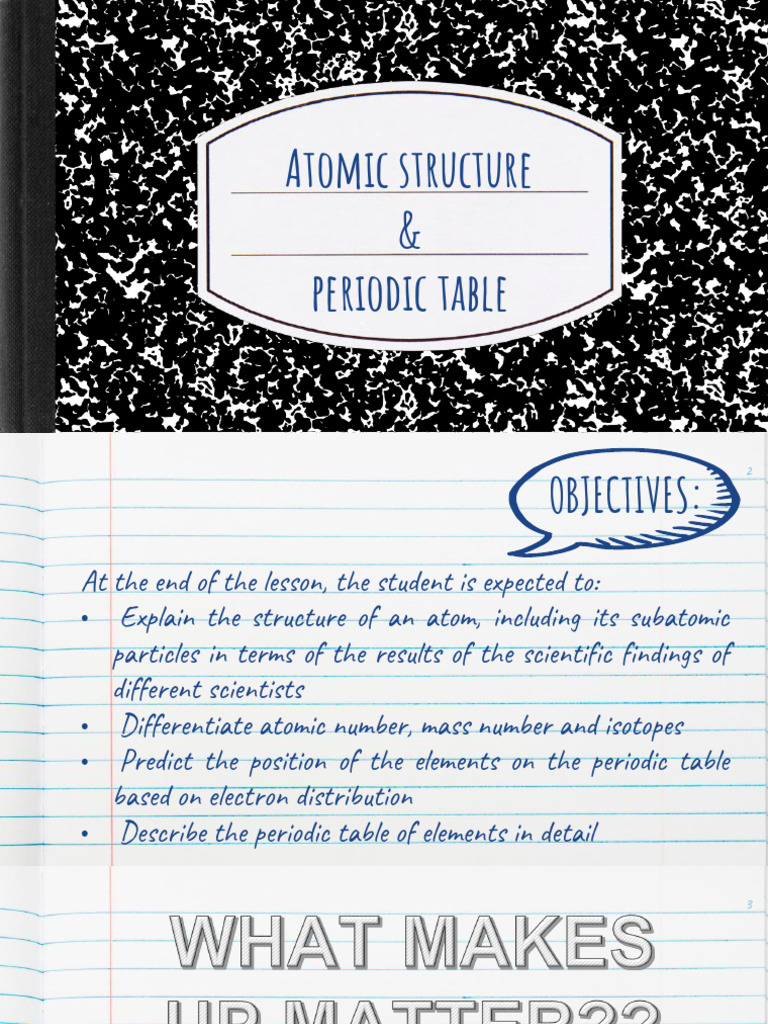 ATOMIC STRUCTURE
&
PERIODIC TABLE
2
OBJECTIVES:
At the end of the lesson, the student is expected to:
• Explain the structure of an atom, including its subatomic
particles in terms of the results of the scientific findings of
different scientists
• Differentiate atomic number, mass number and isotopes
• Predict the position of the elements on the periodic table
based on electron distribution
• Describe the periodic table of elements in detail
3
WHAT MAKES
UP MATTER??